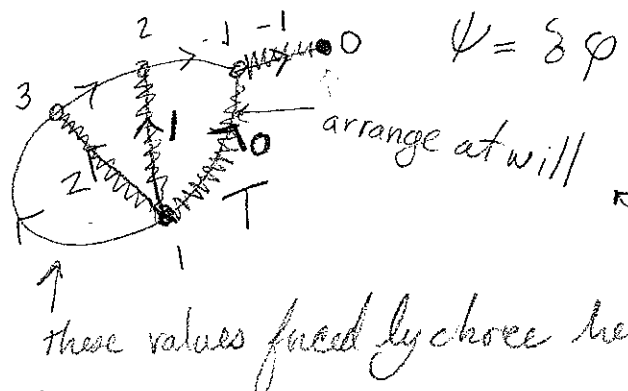 2 1 -1 0
ψ = δφ
3
1 0
arrange at will
2
T
1
these values forced by choice he